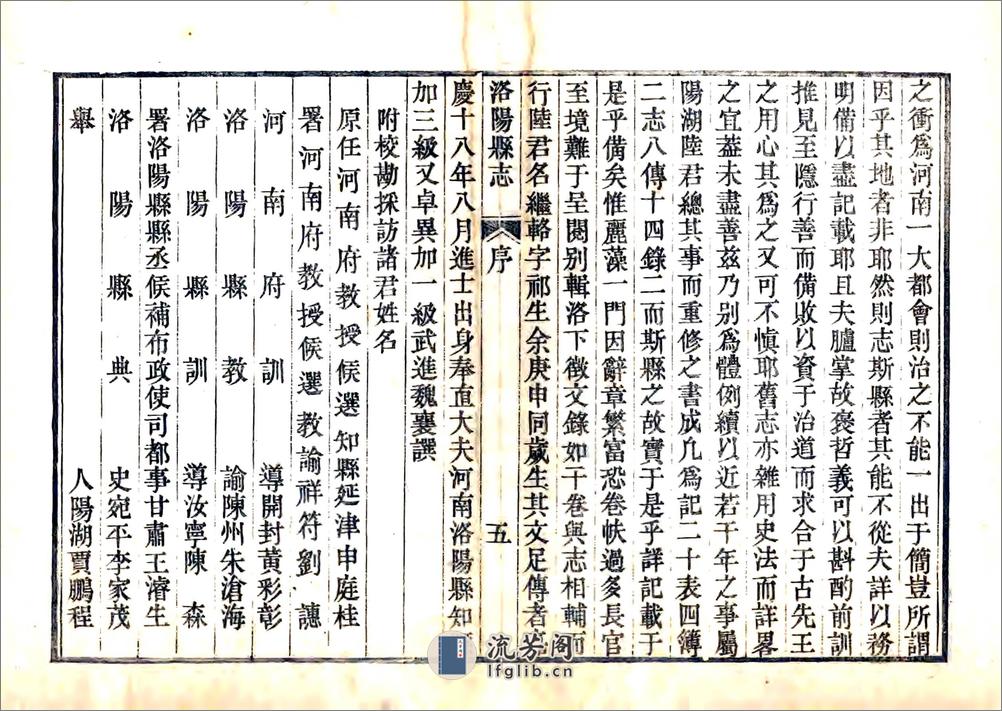 之衝爲河南一大都會則治之不能一出于簡豈所謂
因乎其地者非耶然則志斯縣者其能不從夫詳以務
明備以盡記載耶且夫臚掌故褒哲義可以斟酌前訓
推見至隱行善而備敗以資于治道而求合于古先王
之用心其爲之又可不慎耶舊志亦雜用史法而詳畧
之宜蓋未盡善兹乃别爲體例續以近若干年之事屬
陽湖陸君總其事而重修之書成凡爲記二十表四簿
二志八傳十四錄二而斯縣之故實于是乎詳記載于
是乎備矣惟麗藻一門因辭章繁富恐卷帙過多長官
至境難于呈閱别輯洛下徵文錄如干卷與志相輔而
行陸君名繼輅字祁生余庚申同歲生其文足傳者
洛陽縣志 序 五
慶十八年八月進士出身奉直大夫河南洛陽縣知
加三級又卓異加一級武進魏襄譔
附校勘採訪諸君姓名
原任河南府教授候選知縣延津申庭桂
署河南府教授候選教諭祥符劉 譓
河南府訓導開封黃彩彰
洛陽縣教諭陳州朱滄海
洛陽縣訓導汝寧陳 森
署洛陽縣縣丞候補布政使司都事甘肅王濬生
洛陽縣典史宛平李家茂
舉人陽湖賈鵬程
流芳阁
lfglib.cn